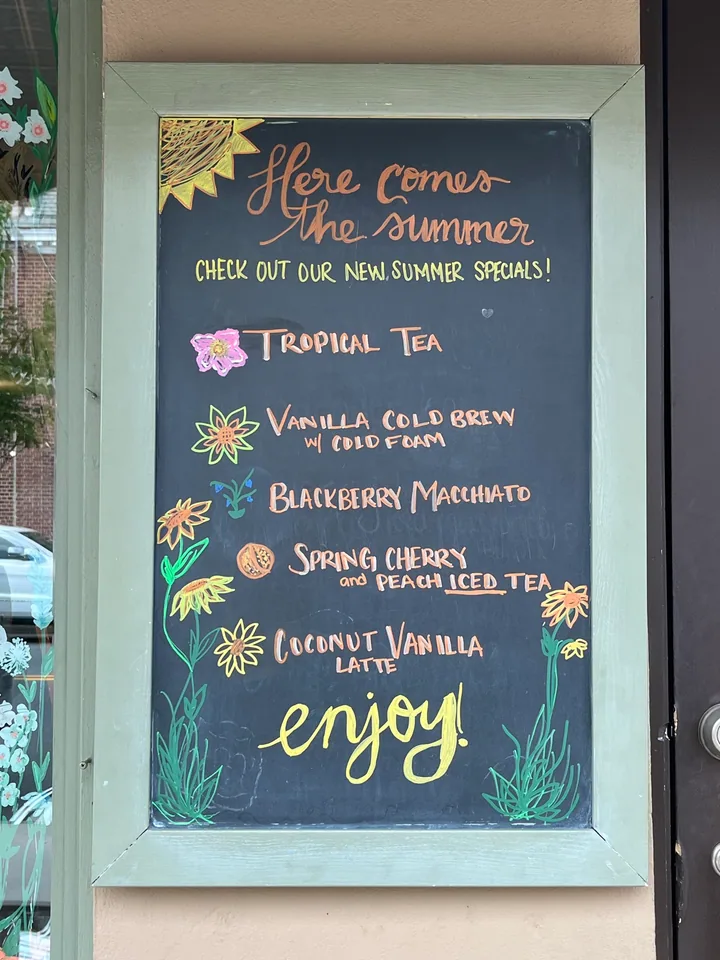 Here comes
the summer
CHECK OUT OUR NEW SUMMER SPECIALS!
TROPICAL TEA
VANILLA COLD BREW
w/ COLD FOAM
BLACKBERRY MACCHIATO
SPRING CHERRY
and PEACH ICED TEA
COCONUT VANILLA
LATTE
enjoy!